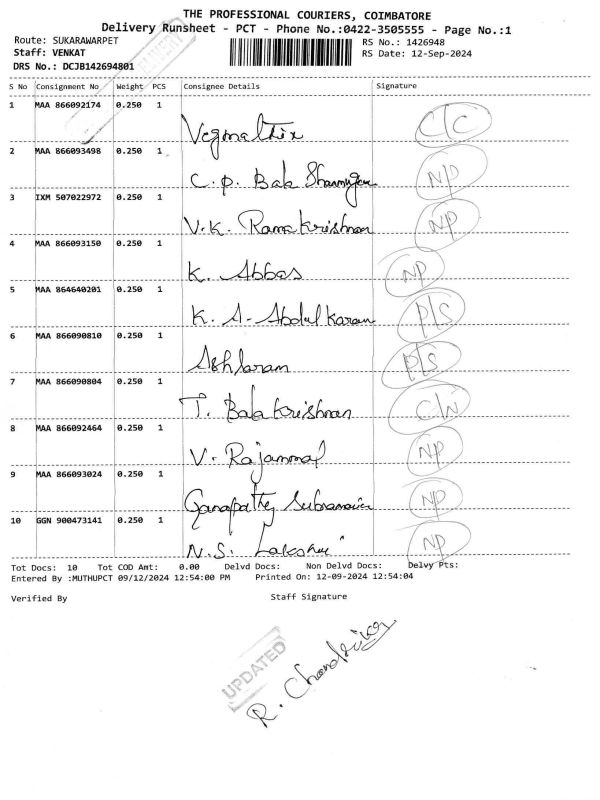 THE PROFESSIONAL COURIERS, COIMBATORE
Delivery Runsheet - PCT - Phone No.:0422-3505555 - Page No.:1
Route: SUKARAWARPET RS No.: 1426948
Staff: VENKAT RS Date: 12-Sep-2024
DRS No.: DCJB142694801
S No Consignment No Weight PCS Consignee Details Signature
1 MAA 866092174 0.250 1 C/C
2 MAA 866093498 0.250 1 C. P. Bala N/P
3 IXM 507022972 0.250 1 V.K. Rama Krishnan NP
4 MAA 866093150 0.250 1 K. Abbas NP
5 MAA 864640201 0.250 1 K. A. Abdul Karam P/S
6 MAA 866090810 0.250 1 Ashlaram P/S
7 MAA 866090804 0.250 1 T. Bala Krishnan
8 MAA 866092464 0.250 1 V. Rajammal NP
9 MAA 866093024 0.250 1 Ganapathy NP
10 GGN 900473141 0.250 1 N.S. NP
Tot Docs: 10 Tot COD Amt: 0.00 Delvd Docs: Non Delvd Docs: Delvy Pts:
Entered By :MUTHUPCT 09/12/2024 12:54:00 PM Printed On: 12-09-2024 12:54:04
Verified By Staff Signature
UPDATED
R.